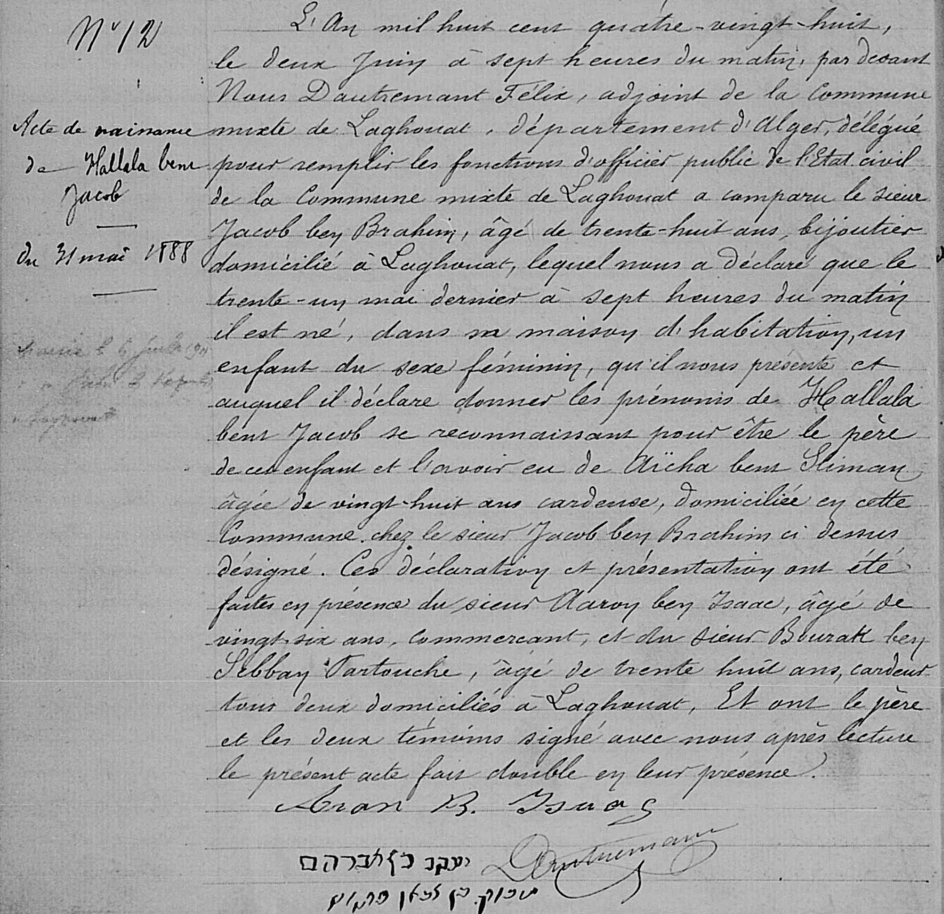 N° 12
Acte de naissance
de Hallala bent
Jacob
du 31 mai 1888
L'An mil huit cent quatre-vingt-huit,
le deux Juin à sept heures du matin, par devant
Nous Dautremant Félix, adjoint de la Commune
mixte de Laghouat, département d'Alger, délégué
pour remplir les fonctions d'officier public de l'Etat civil
de la Commune mixte de Laghouat a comparu le sieur
Jacob ben Brahim, âgé de trente-huit ans, bijoutier
domicilié à Laghouat, lequel nous a déclaré que le
trente-un mai dernier à sept heures du matin
il est né, dans sa maison d'habitation, un
enfant du sexe féminin, qu'il nous présente et
auquel il déclare donner les prénoms de Hallala
bent Jacob se reconnaissant pour être le père
de cet enfant et l'avoir eu de Aïcha bent Sliman,
âgée de vingt-huit ans cardeuse, domiciliée en cette
Commune chez le sieur Jacob ben Brahim ci dessus
désigné. Ces déclaration et présentation ont été
faites en présence du sieur Aaron ben Isaac, âgé de
vingt-six ans, commercant, et du sieur Bourak ben
Sebban Partouche, âgé de trente huit ans, cardeur
tous deux domiciliés à Laghouat, Et ont le père
et les deux témoins signé avec nous après lecture
le présent acte fait double en leur présence.
Aran B. Isaac
יעקב בן אברהם
Dautremant
בן